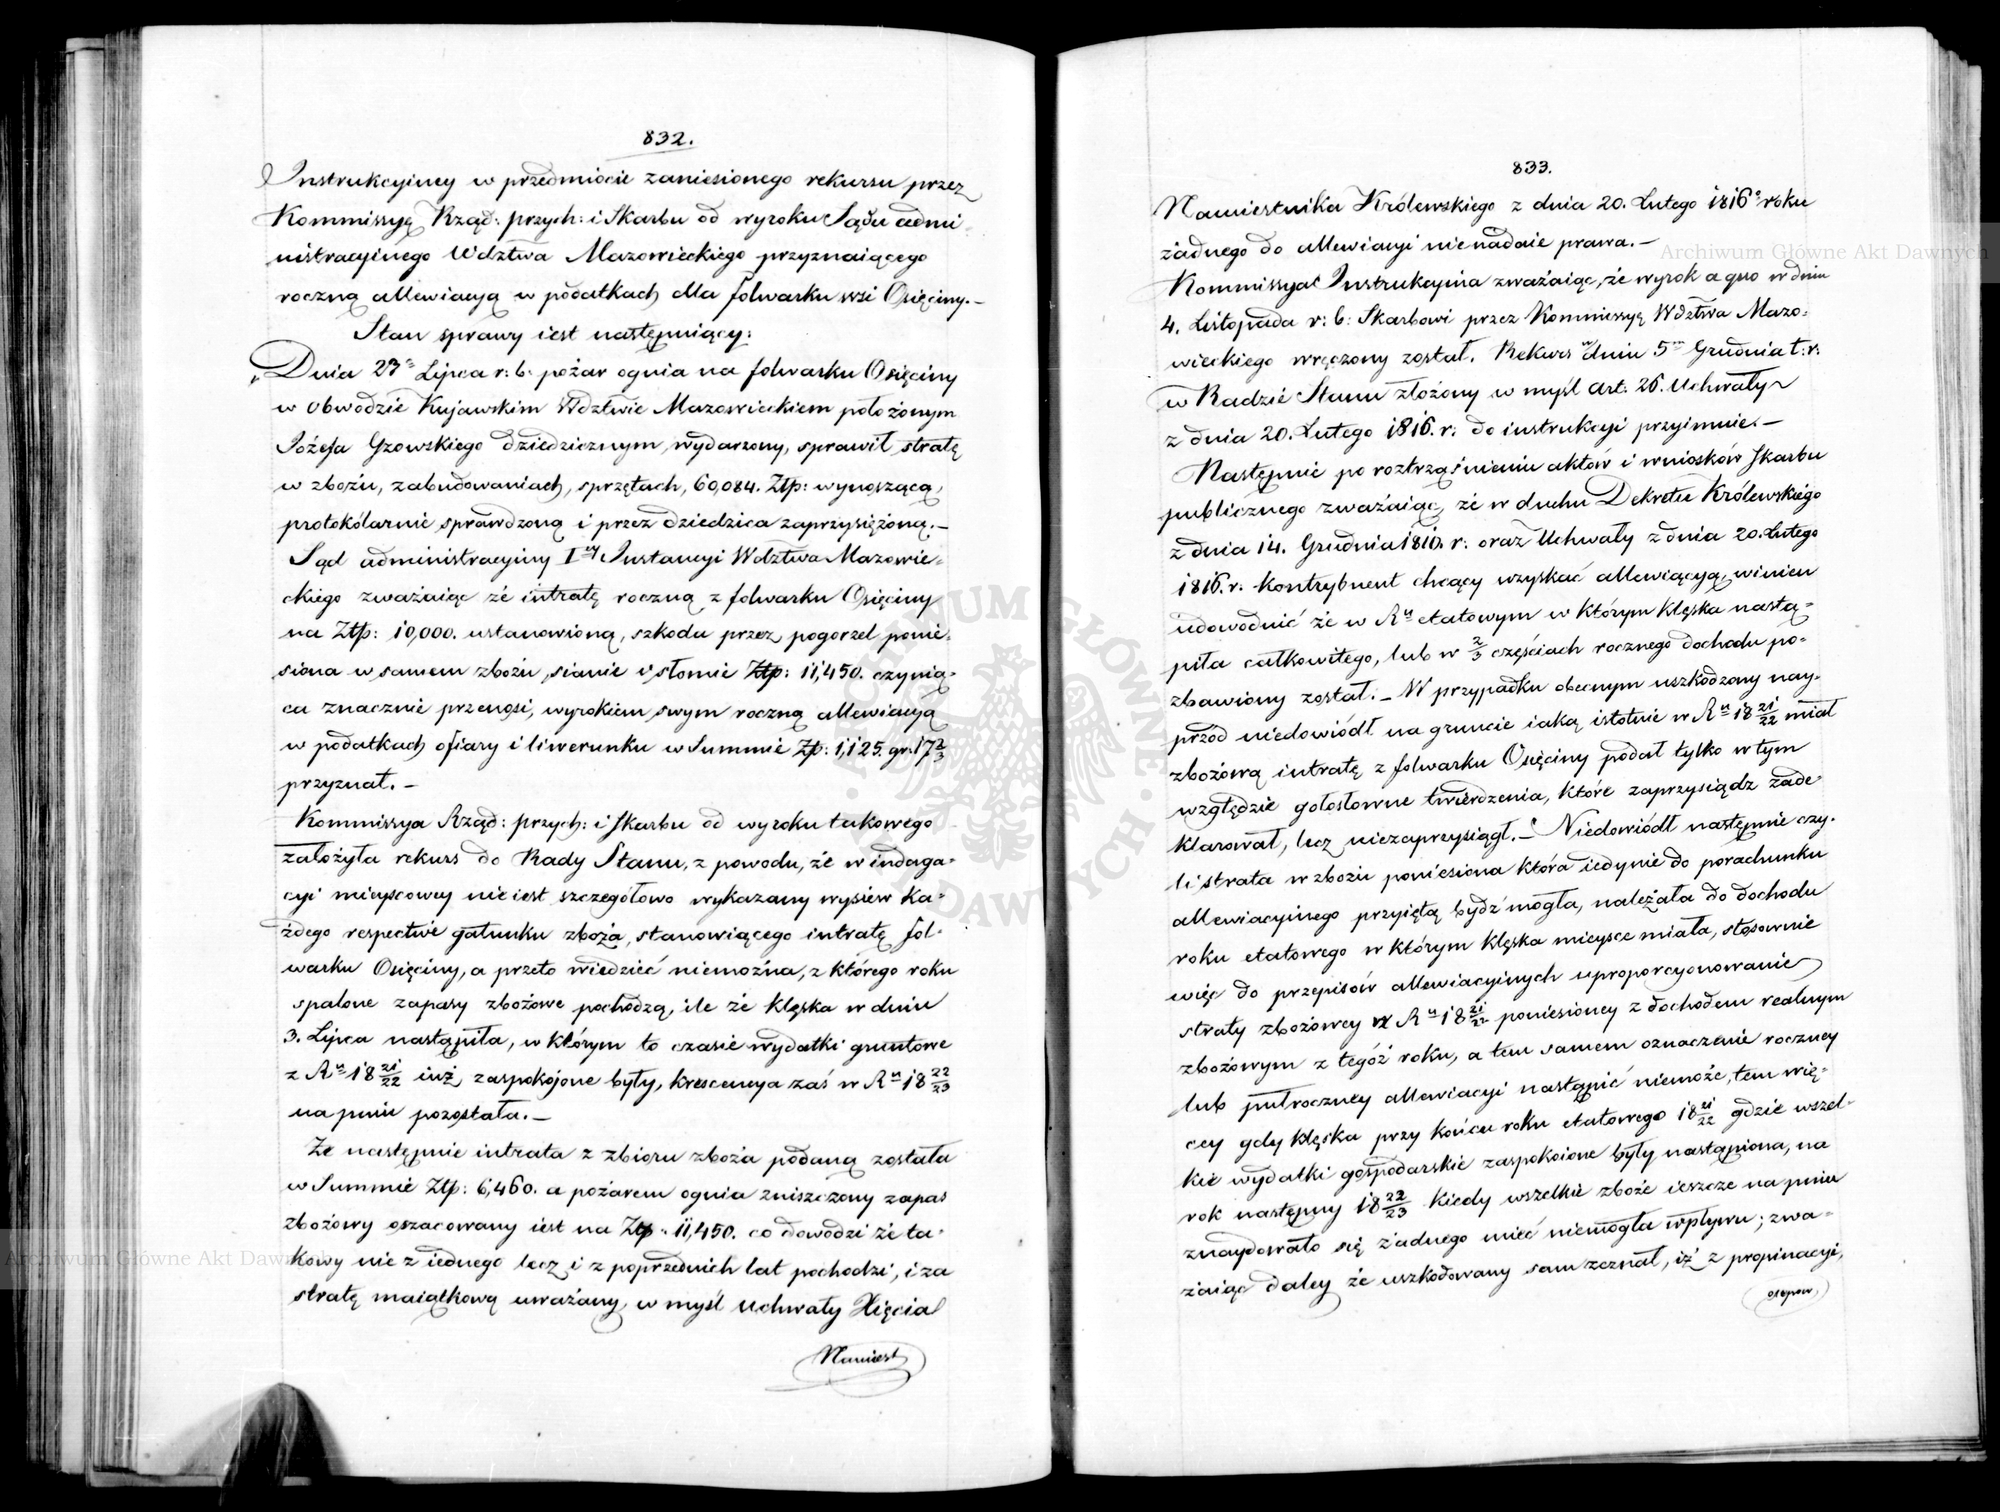 832.
Instrukcyiney w przedmiocie zaniesionego rekursu przez
Kommissyę Rząd: przych: i Skarbu od wyroku Sądu admi
nistracyinego Wdztwa Mazowieckiego przyznaiącego
roczną allewiacyą w podatkach dla folwarku wsi Osięciny.—
Stan sprawy iest następuiący:
Dnia 27 Lipca r: b: pożar ognia na folwarku Osięciny
w Obwodzie Kujawskim Wdztwie Mazowieckiem położonym
Józefa Gzowskiego dziedzicznym, wydarzony, sprawił stratę
w zbożu, zabudowaniach, sprzętach, 60,084. Ztp: wynoszącą,
protokólarnie sprawdzoną i przez dziedzica zaprzysiężoną.—
Sąd administracyiny Iey Instancyi Wdztwa Mazowie-
ckiego zważaiąc że intratę roczną z folwarku Osięciny
na Ztp: 10,000. ustanowioną, szkoda przez pogorzel ponie-
siona w samem zbożu, sianie i słomie Ztp: 11,450. czynią-
ca znacznie przenosi, wyrokiem swym roczną allewiacyą
w podatkach ofiary i liwerunku w Summie Zp: 1,125. gr. 17 2/3
przyznał.—
Kommissya Rząd: przych: i Skarbu od wyroku takowego
założyła rekurs do Rady Stanu, z powodu, że w indaga-
cyi mieyscowey nie iest szczegółowo wykazany wysiew ka-
żdego respective gatunku zboża, stanowiącego intratę fol-
warku Osięciny, a przeto wiedzieć niemożna, z którego roku
spalone zapasy zbożowe pochodzą, ile że klęska w dniu
3. Lipca nastąpiła, w którym to czasie wydatki gruntowe
z Ru 18 21/22 iuż zaspokojone były, krescencya zaś w Ru 18 22/23
na pniu pozostała.—
Że następnie intrata z zbioru zboża podaną została
w Summie Ztp: 6,460. a pożarem ognia zniszczony zapas
zbożowy oszacowany iest na Ztp: 11,450. co dowodzi że ta-
kowy nie z iednego lecz i z poprzednich lat pochodzi, i za
stratę maiątkową uważany, w myśl Uchwały Xięcia
Namiest
833.
Namiestnika Królewskiego z dnia 20. Lutego 1816o roku
żadnego do allewiacyi nie nadaie prawa.—
Kommissya Instrukcyina zważaiąc, że wyrok a quo w dniu
4. Listopada r: b: Skarbowi przez Kommissyę Wdztwa Mazo-
wieckiego wręczony został. Rekurs w dniu 5m Grudnia t: r:
w Radzie Stanu złożony w myśl Art: 26. Uchwały
z dnia 20. Lutego 1816. r: do instrukcyi przyimuie.—
Następnie po roztrząśnieniu aktów i wniosków Skarbu
publicznego zważaiąc że w duchu Dekretu Królewskiego
z dnia 14. Grudnia 1810. r: oraz Uchwały z dnia 20. Lutego
1816. r: kontrybuent chcący uzyskać allewiacyą, winien
udowodnić że w Ru etatowym w którym klęska nastą-
piła całkowitego, lub w 2/3 częściach rocznego dochodu po-
zbawiony został.— W przypadku obecnym uszkodzony nay-
przód niedowiódł na gruncie iaką istotnie w Ru 18 21/22 miał
zbożową intratę z folwarku Osięciny podał tylko w tym
względzie gołosłowne twierdzenia, które zaprzysiądz zade-
klarował, lecz niezaprzysiągł.— Niedowiódł następnie czy-
li strata w zbożu poniesiona która iedynie do porachunku
allewiacyinego przyiętą bydź mogła, należała do dochodu
roku etatowego w którym klęska mieysce miała, stosownie
więc do przepisów allewiacyinych uproporcyonowanie
straty zbożowey w Ru 18 21/22 poniesioney z dochodem realnym
zbożowym z tegóż roku, a tem samem oznaczenie roczney
lub półroczney allewiacyi nastąpić niemoże, tem wię-
cey gdy klęska przy końcu roku etatowego 18 21/22 gdzie wszel-
kie wydatki gospodarskie zaspokoione były nastąpiona, na
rok następny 18 22/23 kiedy wszelkie zboże ieszcze na pniu
znaydowało się żadnego mieć niemogła wpływu; zwa-
żaiąc daley że uszkodowany sam zeznał, iż z propinacyi,
Archiwum Główne Akt Dawnych
Archiwum Główne Akt Dawnych
ARCHIWUM GŁÓWNE AKT DAWNYCH